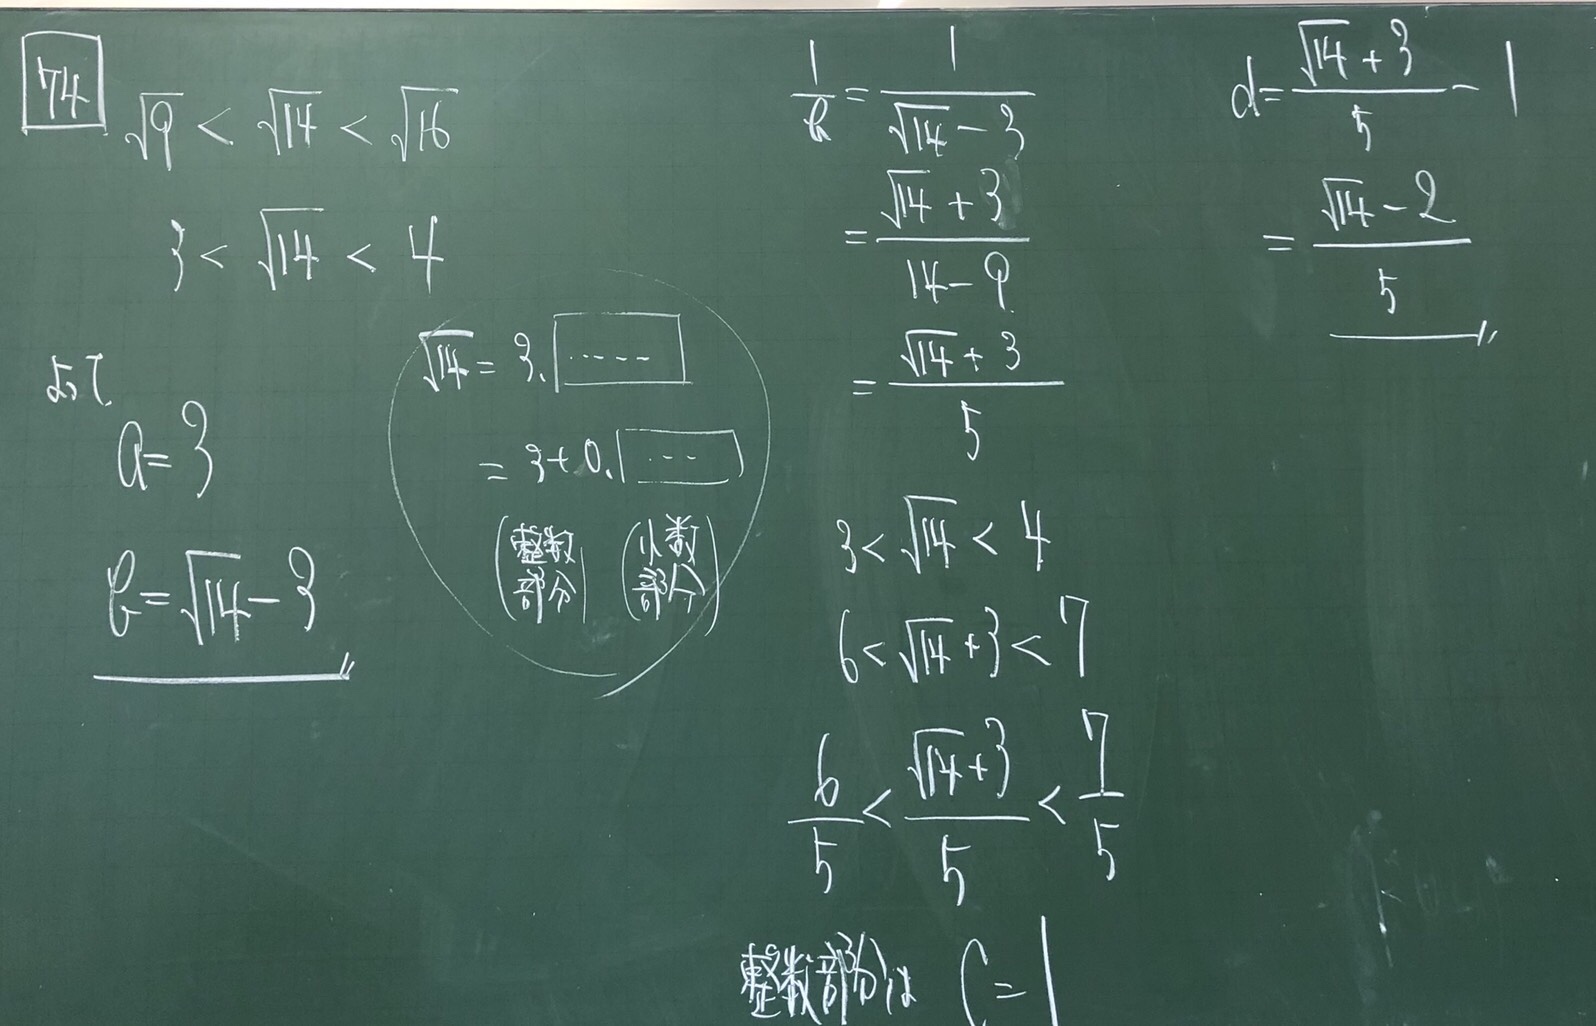 74
√9 < √14 < √16
3 < √14 < 4
よって
a=3
b=√14-3
√14 = 3.-----
= 3+0.---
(整数部分) (小数部分)
1/b = 1/(√14-3)
= (√14+3)/(14-9)
= (√14+3)/5
3 < √14 < 4
6 < √14+3 < 7
6/5 < (√14+3)/5 < 7/5
整数部分は C=1
d= (√14+3)/5 - 1
= (√14-2)/5